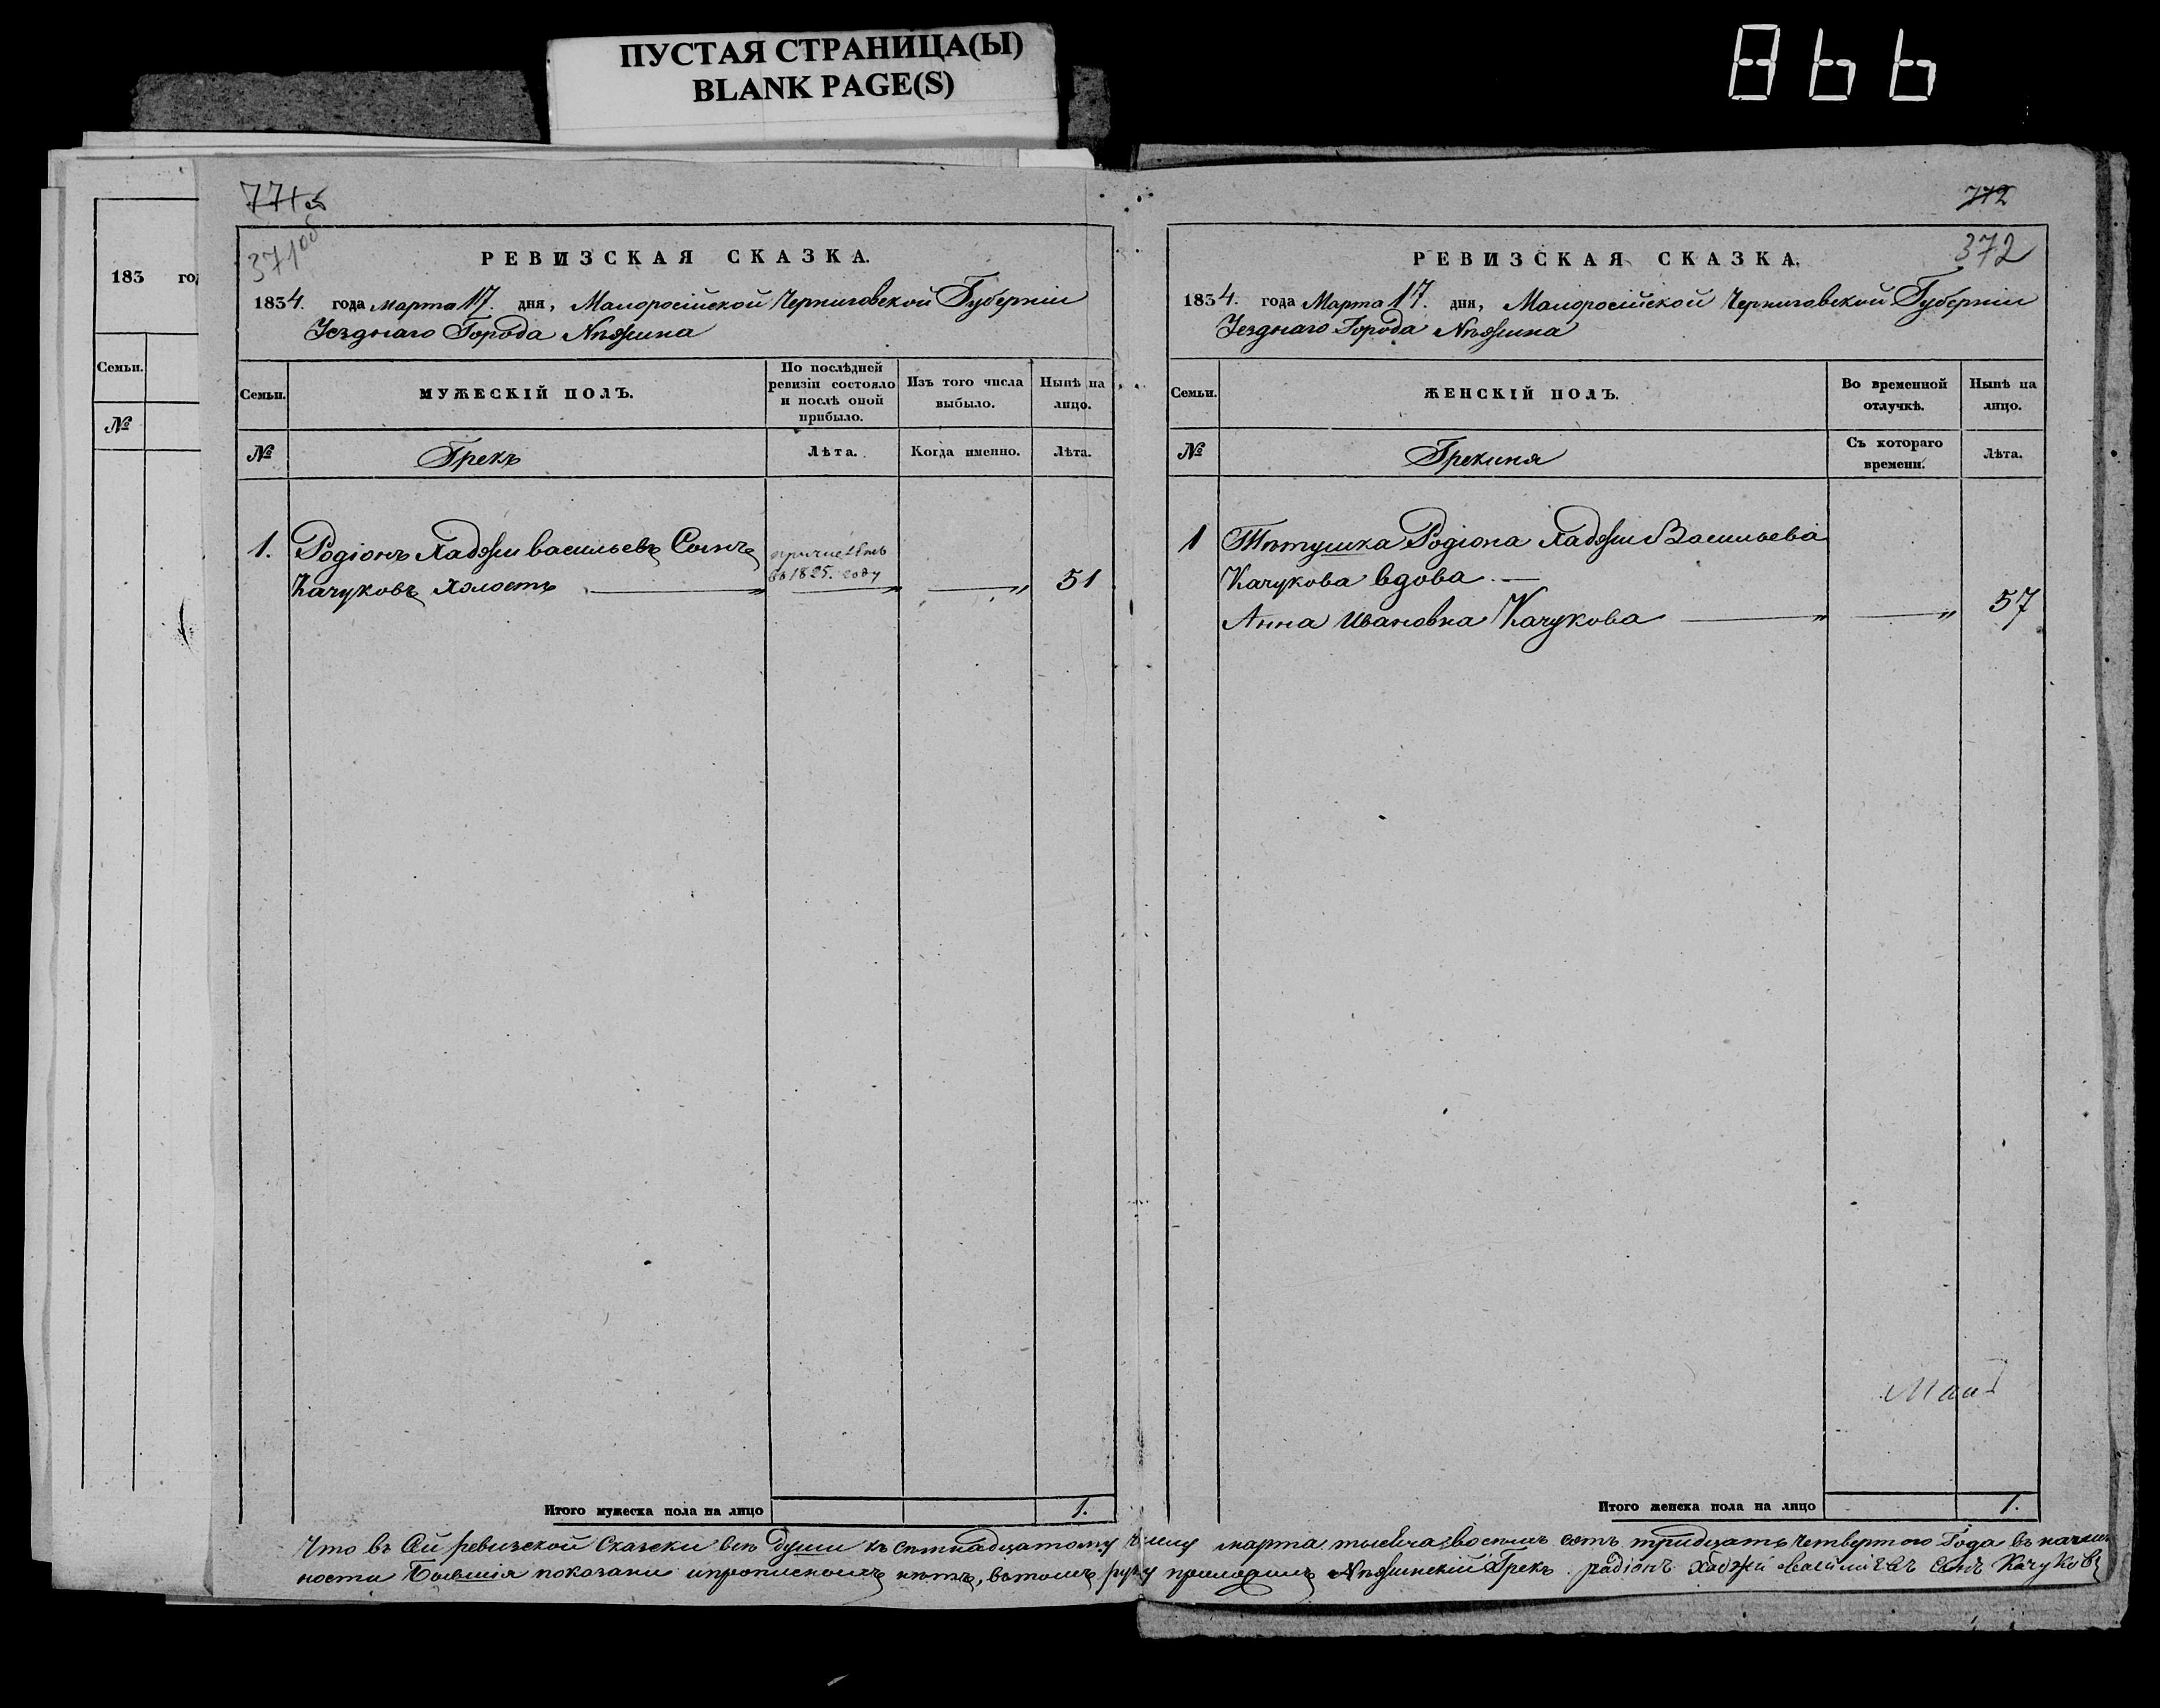 ПУСТАЯ СТРАНИЦА(Ы)
BLANK PAGE(S)
866
183 го
Семьи.
№
771
371об
РЕВИЗСКАЯ СКАЗКА.
1834. года марта 17. дня, Малоросійской Черниговской Губерніи
Уезднаго Города Нѣжина
Семьи.
МУЖЕСКІЙ ПОЛЪ.
По послѣдней ревизіи состояло и послѣ оной прибыло.
Изъ того числа выбыло.
Нынѣ на лицо.
№
Грекъ
Лѣта.
Когда именно.
Лѣта.
1. Родіонъ Хаджи васильевъ Сынъ причисленъ
Качуковъ холостъ въ 1825. году 51
Итого мужеска пола на лицо 1.
772
372
РЕВИЗСКАЯ СКАЗКА.
1834. года Марта 17. дня, Малоросійской Черниговской Губерніи
Уезднаго Города Нѣжина
Семьи.
ЖЕНСКІЙ ПОЛЪ.
Во временной отлучкѣ.
Нынѣ на лицо.
№
Грекиня
Съ котораго времени.
Лѣта.
1 Тѣтушка Родіона Хаджи Васильева
Качукова вдова.
Анна Ивановна Качукова 57
Итого женска пола на лицо 1.
Что въ Сей ревизской Сказски всѣ души къ сѣмнадцатому числу марта тысяча восемь сотъ тридцать четвертого Года въ налич
ности Бывшія показани и прописныхъ нѣтъ, вътомъ руку приложилъ Нѣжинскій Грекъ радіонъ хаджи василіевъ сынъ Качуковъ